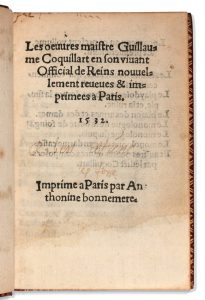 Les oeuures maistre Guillau-
me Coquillart en son viuant
Official de Reins nouuel-
lement reueues & im-
primees a Paris.
1532.
Imprime a Paris par An-
thonine bonnemere.